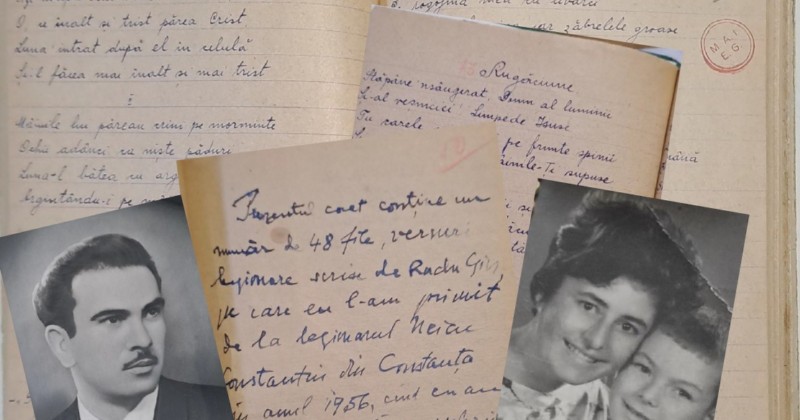 O, ce înalt și trist părea Crist
Luna intrat după el in celulă
Și-l făcea mai înalt și mai trist
Mâinile lui păreau crini pe morminte
Ochii adânci ca niște păduri
Luna-l bătea cu arg
Argintându-i pe
rogojina
iar zăbrelele groase
M.A.I.
Rugăciune
Stăpâne 'nsângerat, Domn al luminii
Și-al veșniciei Limpede Isus
Tu carele pe frunte spinii
mâinile-Ți supuse
Prezentul caet conține un
număr de 48 file, versuri
legionare scrise de Radu Gir,
pe care eu l-am primit
de la legionarul Neicu
Constantin din Constanța
in anul 1956, cînd eu am